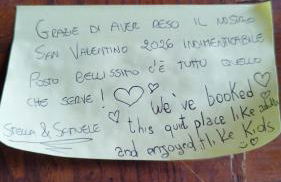 GRAZIE DI AVER RESO IL NOSTRO
SAN VALENTINO 2026 INDIMENTICABILE
POSTO BELLISSIMO C'È TUTTO QUELLO
CHE SERVE!
We've booked
this quit place like adults
and enjoyed it like Kids
STELLA & SAMUELE